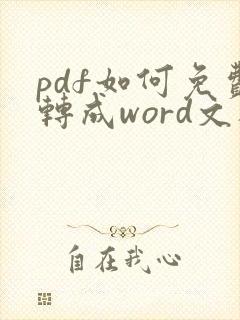 pdf如何免費
轉成word文
自在我心